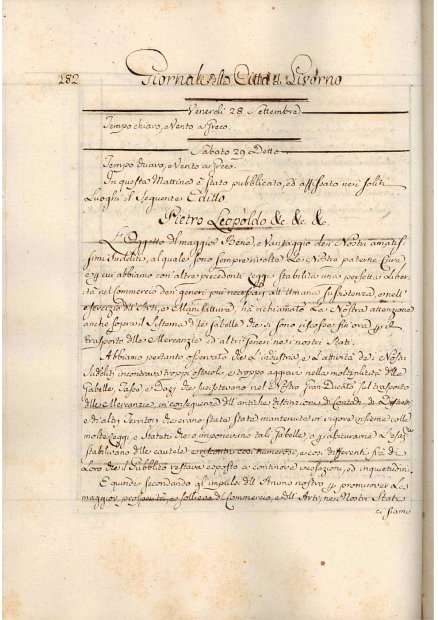 282 Giornale della Città di Livorno
Venerdi 28 Settembre
Tempo chiaro, e Vento a Greco.
Sabato 29 Detto
Tempo Chiaro, e Vento a Greco.
In questa Mattina è stato pubblicato, ed affissato nei soliti
Luoghi il seguente Editto
Pietro Leopoldo &c. &c. &c.
L'Oggetto del maggior Bene, e Vantaggio dei Nostri amatis=
simi Sudditi, al quale sono sempre rivolte le Nostre paterne Cure
e cui abbiamo con altre precedenti Leggi stabilita una perfetta Liber=
tà nel commercio dei generi più necessari all'Umana sussistenza, e nell'
esercizio dell'Arti, e Manifatture, ha richiamato la Nostra attenzione
anche sopra il Sistema delle Gabelle che si sono riscosse fin'ora per il
trasporto delle Mercanzie ed altri generi nei nostri Stati.
Abbiamo pertanto osservato che l'industria e l'attività dei Nostri
Sudditi incontrava troppi ostacoli, e troppo aggravi nella moltiplicità delle
Gabelle, Tasse, e Dazi che sussistevano nel Nostro Gran Ducato sul trasporto
delle Mercanzie, in conseguenza dell'antiche distinzioni di Contado, di Distretto
e di altri Territori che erano state mantenute in vigore insieme colle
molte Leggi, e Statuti che o imponevano tali Gabelle, o per assicurarne l'esaz:
stabilivano delle cautele e così numerose, e così differenti fra di
Loro che il Pubblico restava esposto a continove vessazioni, ed inquietudini.
E quindi secondando gl'impulsi dell'Animo nostro per promuovere la
maggior prosperità, e sollievo del Commercio, e dell'Arti, nei Nostri Stati
ci siamo